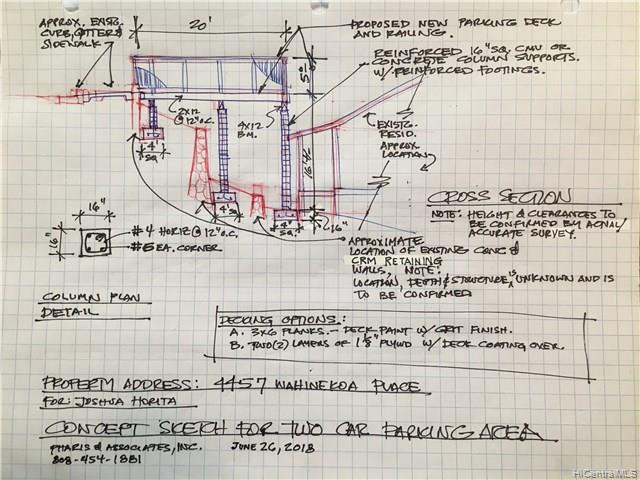 APPROX. EXISTG.
CURB, GUTTER &
SIDEWALK
20'
PROPOSED NEW PARKING DECK
AND RAILING.
REINFORCED 16" SQ. CMU OR
CONCRETE COLUMN SUPPORTS.
W/ REINFORCED FOOTINGS.
2x12
@ 12" O.C.
4x12
BM.
EXISTG.
RESID.
APPROX
LOCATION
4'
SQ
4'
SQ.
4'
SQ.
16"
CROSS SECTION
NOTE: HEIGHT & CLEARANCES TO
BE CONFIRMED BY ACTUAL/
ACCURATE SURVEY.
16"
16"
#4 HORIZ @ 12" O.C.
#5 EA. CORNER
APPROXIMATE
LOCATION OF EXISTING CONC &
CRM RETAINING
WALLS, NOTE:
LOCATION, DEPTH & STRUCTURE IS UNKNOWN AND IS
TO BE CONFIRMED
COLUMN PLAN
DETAIL
DECKING OPTIONS:
A. 3x6 PLANKS. - DECK PAINT W/ GRIT FINISH.
B. TWO (2) LAYERS OF 1 1/8" PLYWD W/ DECK COATING OVER.
PROPERTY ADDRESS: 4457 WAHINEKOA PLACE
FOR: JOSHUA HORITA
CONCEPT SKETCH FOR TWO CAR PARKING AREA
PHARIS & ASSOCIATES, INC. JUNE 26, 2018
808-454-1881
HiCentralMLS